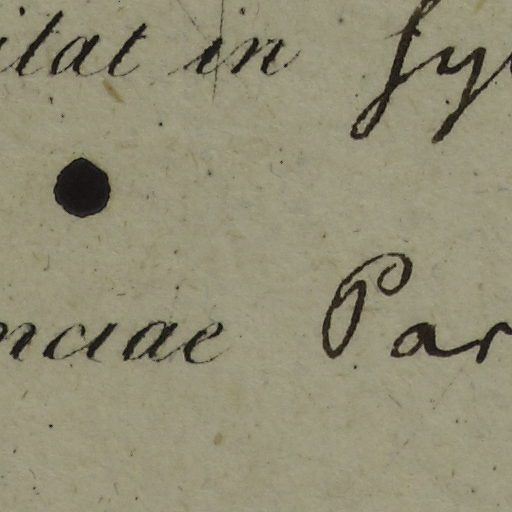 itat in Sy
nciae Par